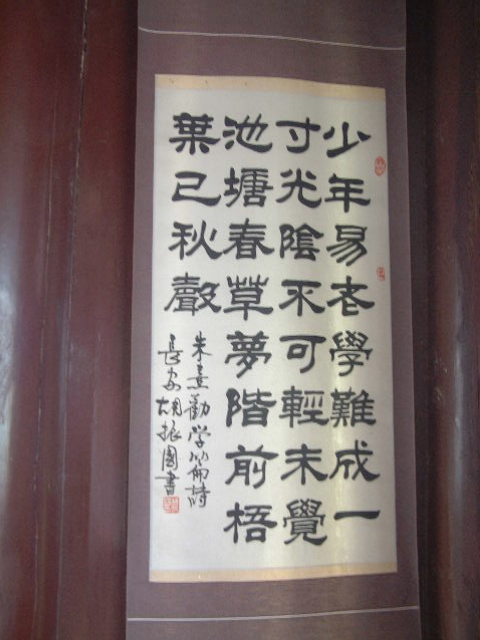 少年易老學難成一
寸光陰不可輕未覺
池塘春草夢階前梧
葉已秋聲
朱熹勸学篇詩
長安胡振國書